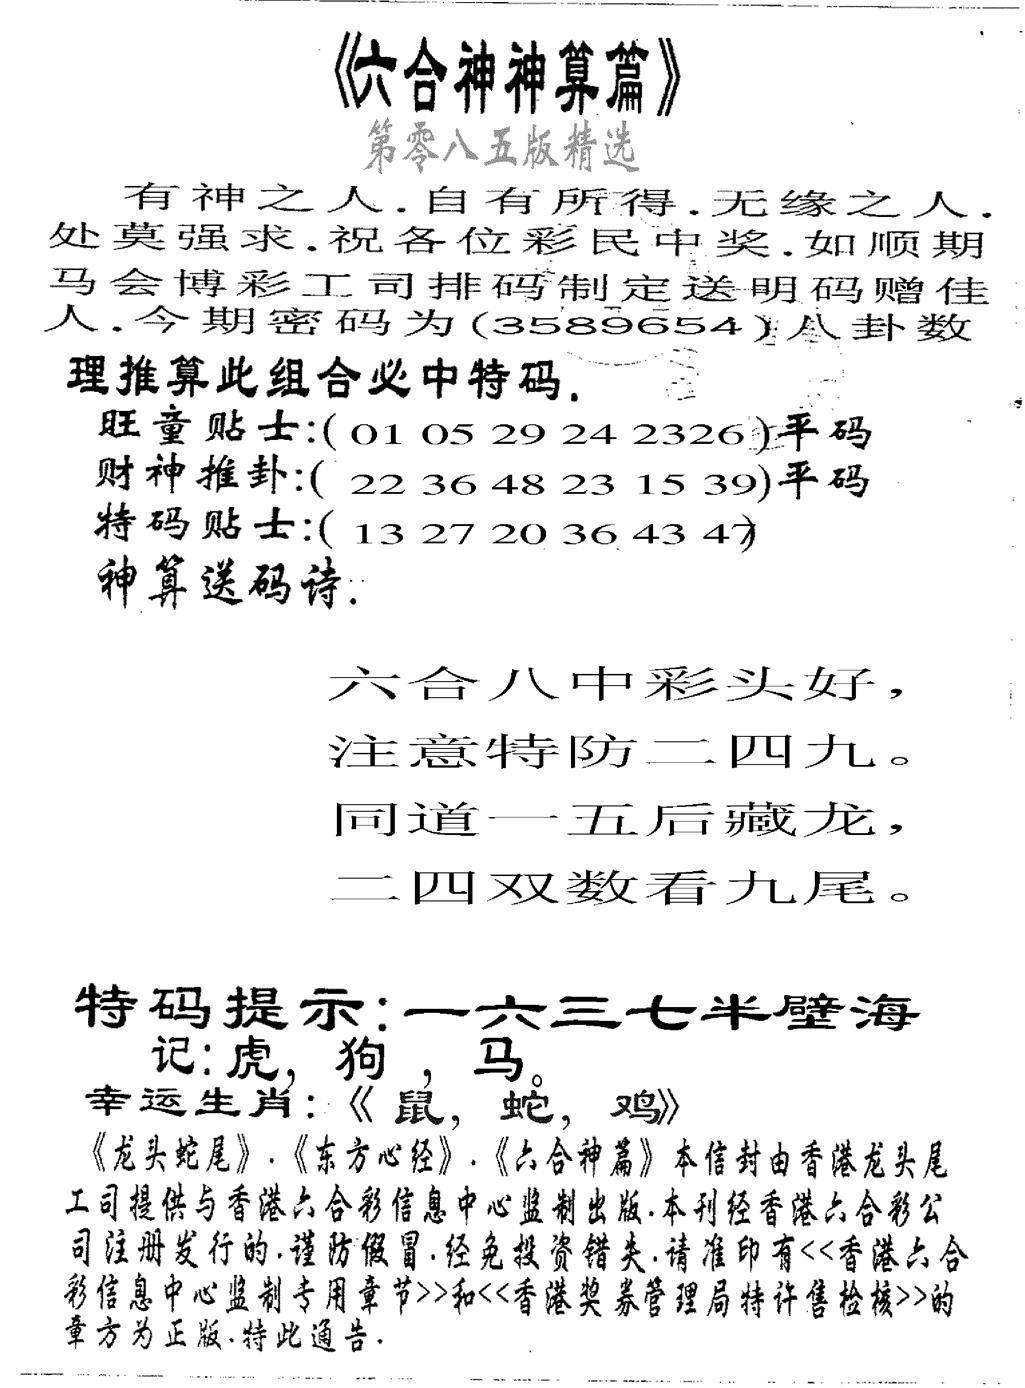 《六合神神算篇》
第零八五版精选
有神之人.自有所得.无缘之人.
处莫强求.祝各位彩民中奖.如顺期
马会博彩工司排码制定送明码赠佳
人.今期密码为(3589654)八卦数
理推算此组合必中特码.
旺童贴士:( 01 05 29 24 2326 )平码
财神推卦:( 22 36 48 23 15 39)平码
特码贴士:( 13 27 20 36 43 47)
神算送码诗.
六合八中彩头好，
注意特防二四九。
同道一五后藏龙，
二四双数看九尾。
特码提示:一六三七半壁海
记:虎，狗，马。
幸运生肖:《鼠，蛇，鸡》
《龙头蛇尾》.《东方心经》.《六合神篇》本信封由香港龙头尾
工司提供与香港六合彩信息中心监制出版.本刊经香港六合彩公
司注册发行的.谨防假冒.经免投资错失.请准印有<<香港六合
彩信息中心监制专用章节>>和<<香港奖券管理局特许售检核>>的
章方为正版.特此通告.